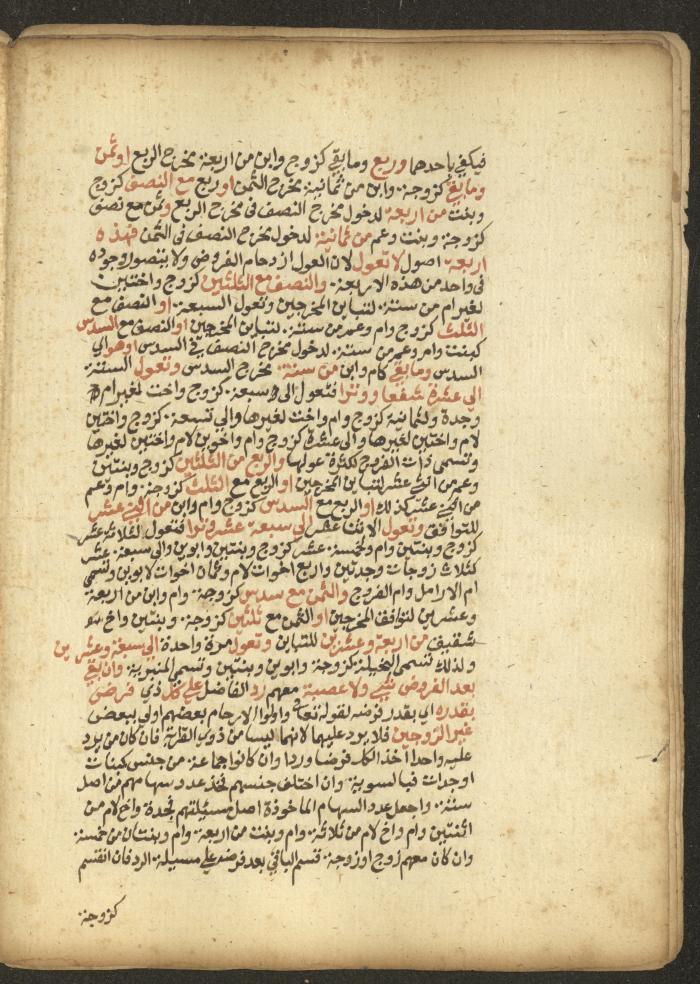 فيكتفي باحدهما وربع وما بقي كزوج وابن من اربعة مخرج الربع او ثمن
وما بقي كزوجة وابن من ثمانية مخرج الثمن او ربع مع النصف كزوج
وبنت من اربعة لدخول مخرج النصف في مخرج الربع وثمن مع نصف
كزوجة وبنت وعم من ثمانية لدخول مخرج النصف في الثمن فهذه
اربعة اصول لا تعول لان العول ازدحام الفروض ولا يتصور وجوده
في واحد من هذه الاربعة والنصف مع الثلثين كزوج واختين
لغير ام من ستة لتباين المخرجين وتعول لسبعة او النصف مع
الثلث كزوج وام وعم من ستة لتباين المخرجين او النصف مع السدس
كبنت وام وعم من ستة لدخول مخرج النصف في السدس او هو اي
السدس وما بقي كام وابن من ستة مخرج السدس وتعول الستة
الى عشرة شفعا ووترا فتعول الى سبعة كزوج واخت لغير ام
وجدة ولثمانية كزوج وام واخت لغيرها والى تسعة كزوج واختين
لام واختين لغيرها والى عشرة كزوج وام واخوين لام واختين لغيرها
وتسمى ذات الفروخ لكثرة عولها والربع مع الثلثين كزوج وبنتين
وعم من اثني عشر لتباين المخرجين او الربع مع الثلث كزوجة وام وعم
من اثني عشر كذلك او الربع مع السدس كزوج وام وابن من اثني عشر
للتوافق وتعول الاثنا عشر الى سبعة عشر وترا فتعول لثلاثة عشر
كزوج وبنتين وام ولخمسة عشر كزوج وبنتين وابوين والى سبعة عشر
كثلاث زوجات وجدتين واربع اخوات لام وثمان اخوات لابوين وتسمى
ام الارامل وام الفروج والثمن مع سدس كزوجة وام وابن من اربعة
وعشرين لتوافق المخرجين او الثمن مع ثلثين كزوجة وبنتين واخ
شقيق من اربعة وعشرين للتباين وتعول مرة واحدة الى سبعة وعشرين
ولذلك تسمى البخيلة كزوجة وابوين وبنتين وتسمى المنبرية وان بقي
بعد الفروض شيء ولا عصبة معهم رد الفاضل على كل ذي فرض
بقدره اي بقدر فرضه لقوله تعالى واولوا الارحام بعضهم اولى ببعض
غير الزوجين فلا يرد عليهما لانهما ليسا من ذوي القرابة فان كان من يرد
عليه واحدا اخذ الكل فرضا وردا وان كانوا جماعة من جنس كبنات
او جدات فبالسوية وان اختلف جنسهم فخذ عدد سهامهم من اصل
ستة واجعل عدد السهام الماخوذة اصل مسئلتهم فجدة واخ لام من
اثنتين وام واخ لام من ثلاثة وام وبنت من اربعة وام وبنتان من خمسة
وان كان معهم زوج او زوجة قسم الباقي بعد فرضه على مسيلة الرد فان انقسم
كزوجة